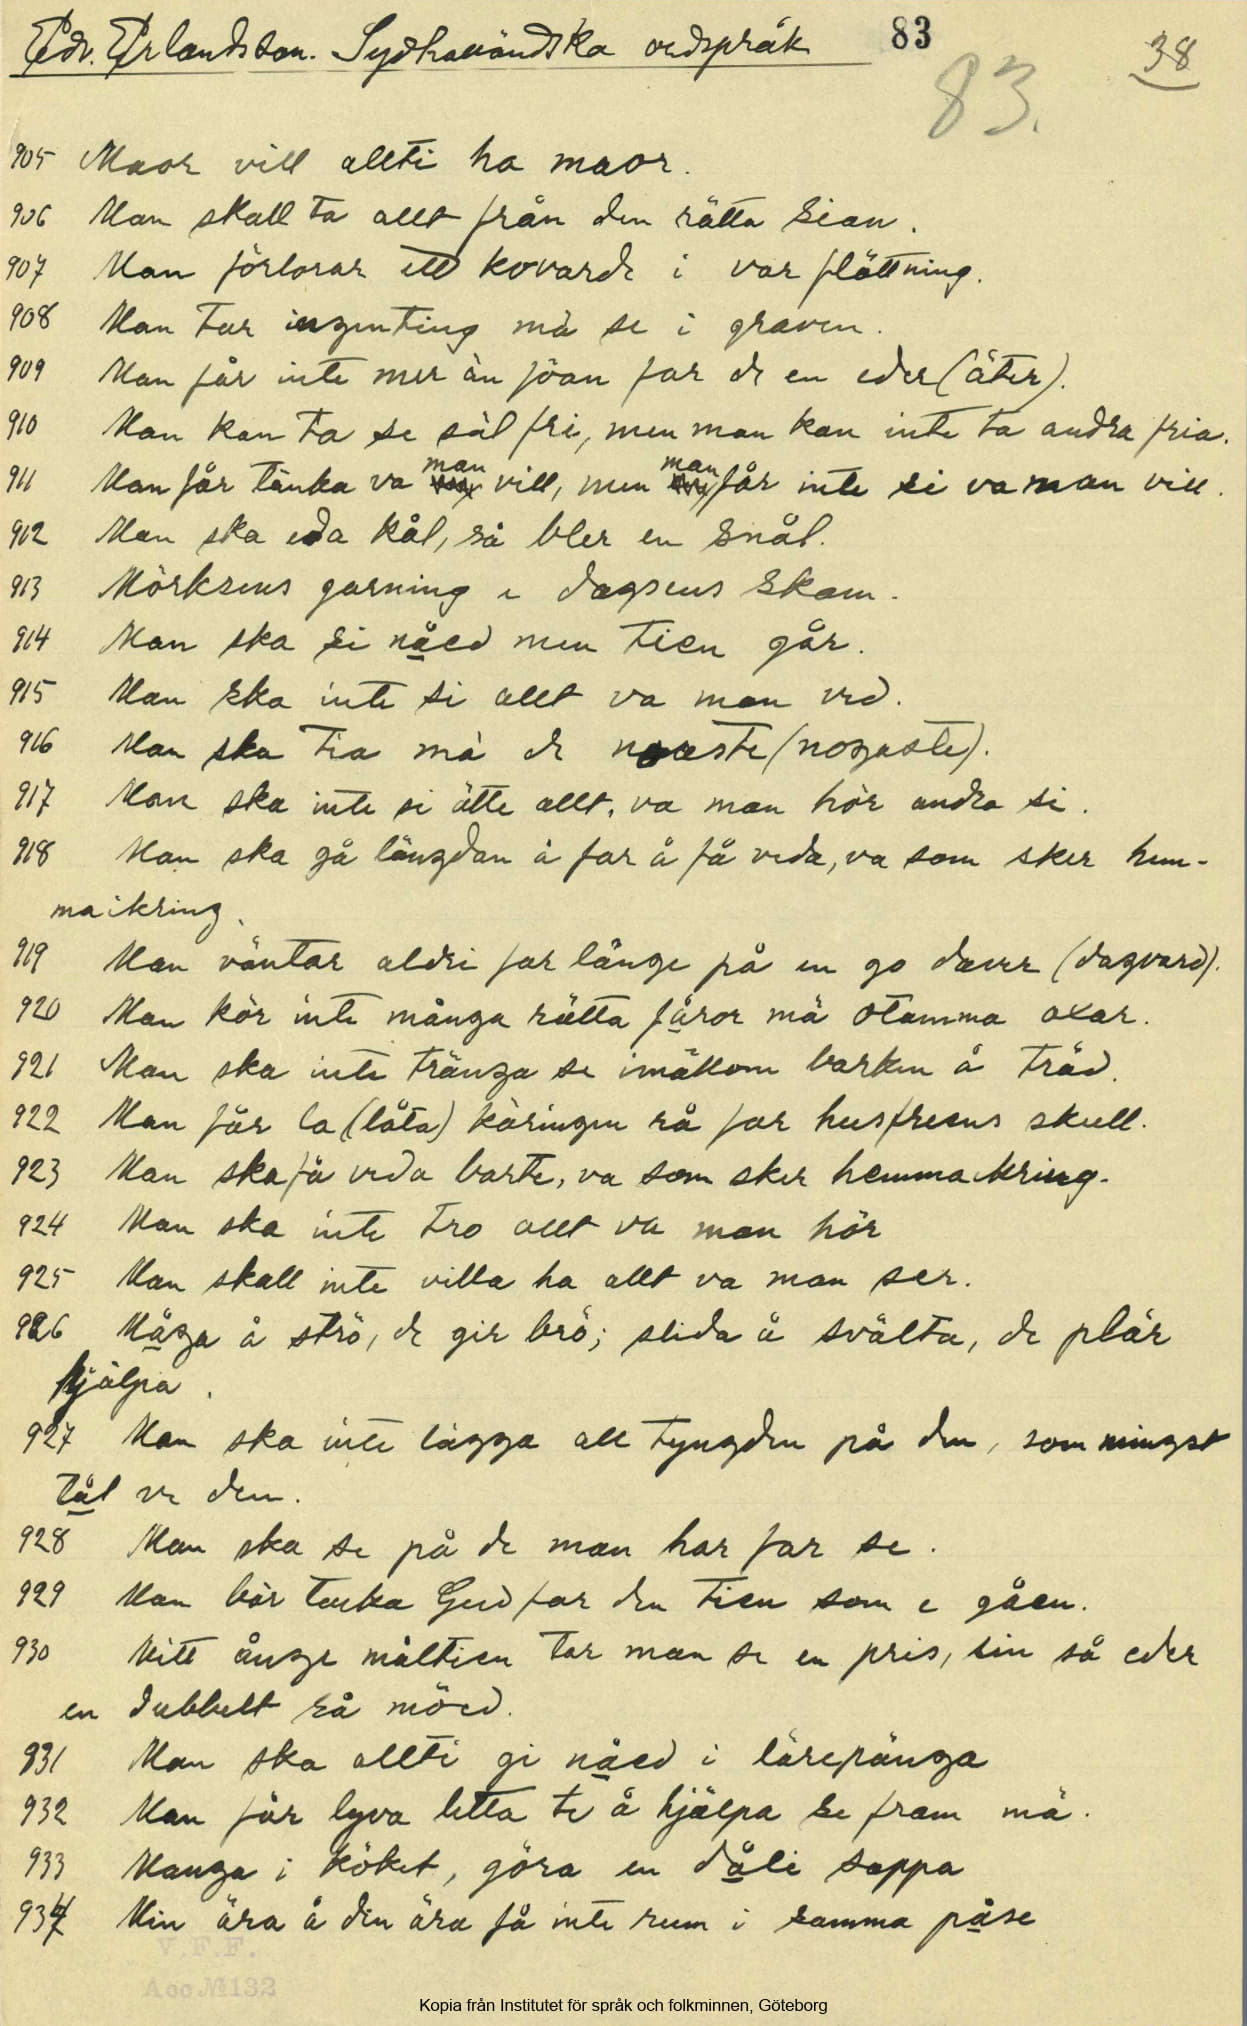 Edv. Erlandsson. Sydhalländska ordspråk 83 38
83.
905 Maor vill allti ha maor.
906 Man skall ta allt från den rätta sian.
907 Man förlorar ett kovarde i var flöttning.
908 Man tar ingenting mä se i graven.
909 Man får inte mer än jöan far de en eder (äter).
910 Man kan ta se säl fri, men man kan inte ta andra fria.
911 Man får tänka va man vill, men man får inte si va man vill.
912 Man ska eda kål, så bler en snål.
913 Mörksens garning e dagsens skam.
914 Man ska si nåed men tien går.
915 Man ska inte si allt va man ved.
916 Man ska tia mä de naaste (nogaste).
917 Man ska inte si ätte allt, va man hör andra si.
918 Man ska gå längdan å far å få veda, va som sker hem-
maikring.
919 Man väntar aldri far länge på en go daver (dagvard).
920 Man kör inte många rätta fåror mä otamma oxar.
921 Man ska inte tränga se imällom barken å träd.
922 Man får la (låta) käringen rå far husfreens skull.
923 Man ska få veda barte, va som sker hemmaikring.
924 Man ska inte tro allt va man hör
925 Man skall inte villa ha allt va man ser.
926 Måga å strö, de gir brö; slida å svälta, de plär
hjälpa.
927 Man ska inte lägga all tyngden på den, som mingst
tål ve den.
928 Man ska se på de man har far se.
929 Man bör tacka Gud far den tien som e gåen.
930 Mitt ånge måltien tar man se en pris, sin så eder
en dubbelt så möed.
931 Man ska allti gi nåed i lärepänga
932 Man får lyva letta te å hjälpa se fram mä.
933 Manga i köket, göra en dåli soppa
934 Min ära å din ära få inte rum i samma påse
V.F.F.
Acc №132
Kopia från Institutet för språk och folkminnen, Göteborg